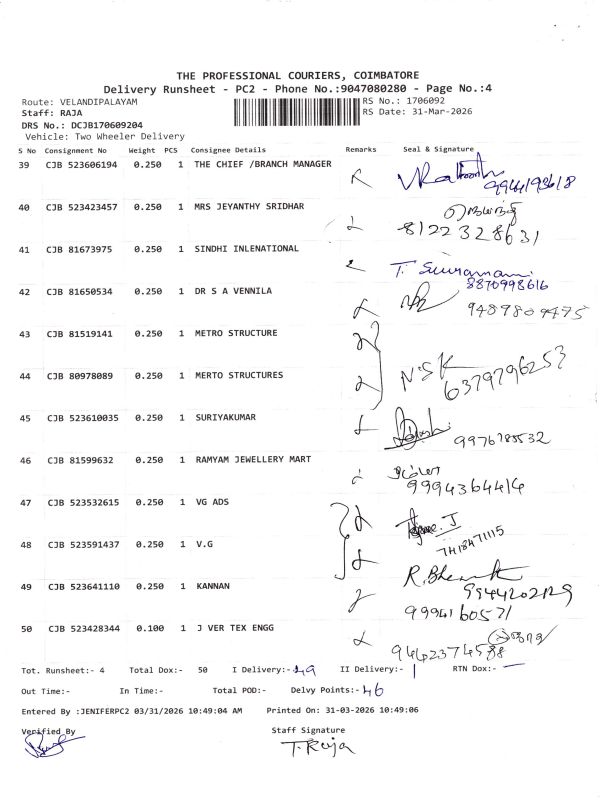 THE PROFESSIONAL COURIERS, COIMBATORE
Delivery Runsheet - PC2 - Phone No.:9047080280 - Page No.:4
Route: VELANDIPALAYAM RS No.: 1706092
Staff: RAJA RS Date: 31-Mar-2026
DRS No.: DCJB170609204
Vehicle: Two Wheeler Delivery
S No Consignment No Weight PCS Consignee Details Remarks Seal & Signature
39 CJB 523606194 0.250 1 THE CHIEF /BRANCH MANAGER
40 CJB 523423457 0.250 1 MRS JEYANTHY SRIDHAR
8122328631
41 CJB 81673975 0.250 1 SINDHI INLENATIONAL
8870998616
42 CJB 81650534 0.250 1 DR S A VENNILA
9489809475
43 CJB 81519141 0.250 1 METRO STRUCTURE
44 CJB 80978089 0.250 1 MERTO STRUCTURES N.S.K
6379796253
45 CJB 523610035 0.250 1 SURIYAKUMAR
46 CJB 81599632 0.250 1 RAMYAM JEWELLERY MART
9994364414
47 CJB 523532615 0.250 1 VG ADS
7418471115
48 CJB 523591437 0.250 1 V.G
49 CJB 523641110 0.250 1 KANNAN
9944202129
9994160571
50 CJB 523428344 0.100 1 J VER TEX ENGG
Tot. Runsheet:- 4 Total Dox:- 50 I Delivery:- 49 II Delivery:- 1 RTN Dox:- —
Out Time:- In Time:- Total POD:- Delvy Points:- 46
Entered By :JENIFERPC2 03/31/2026 10:49:04 AM Printed On: 31-03-2026 10:49:06
Verified By Staff Signature
T. Raja